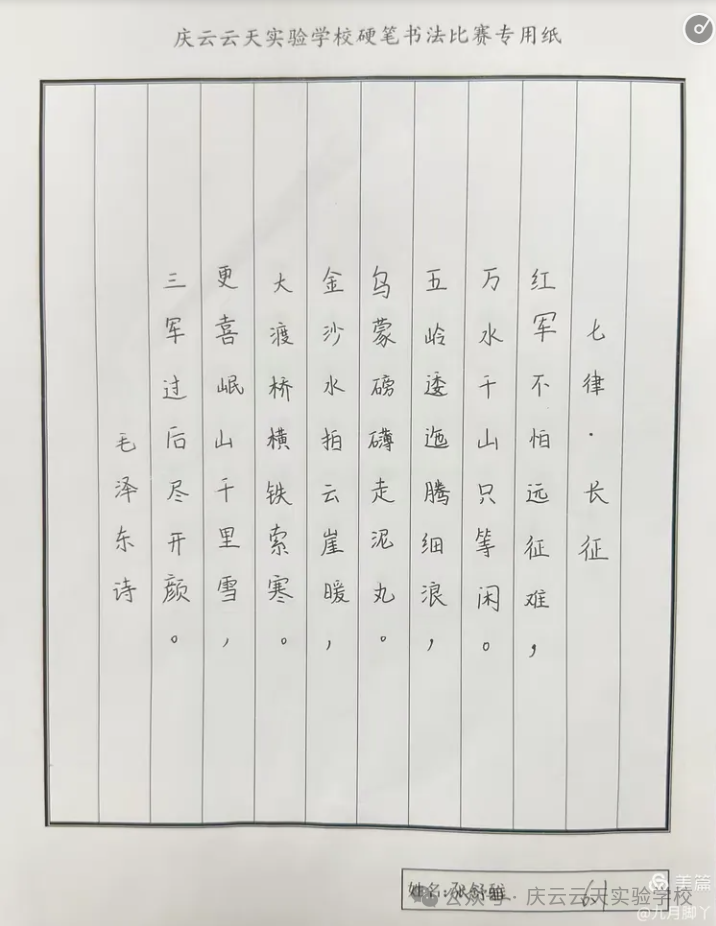 庆云云天实验学校硬笔书法比赛专用纸
七律·长征
红军不怕远征难，
万水千山只等闲。
五岭逶迤腾细浪，
乌蒙磅礴走泥丸。
金沙水拍云崖暖，
大渡桥横铁索寒。
更喜岷山千里雪，
三军过后尽开颜。
毛泽东诗
姓名：张舒雅 6.1
公众号·庆云云天实验学校
美篇
@九月脚丫